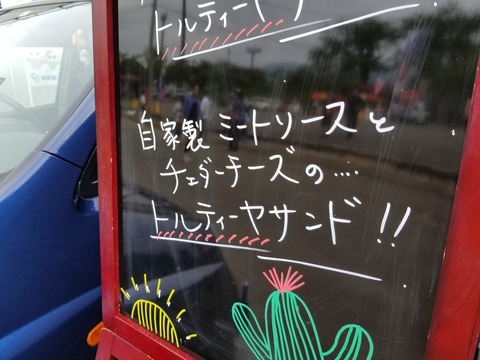 トルティーヤ
自家製 ミートソースと
チェダーチーズの....
トルティーヤサンド!!